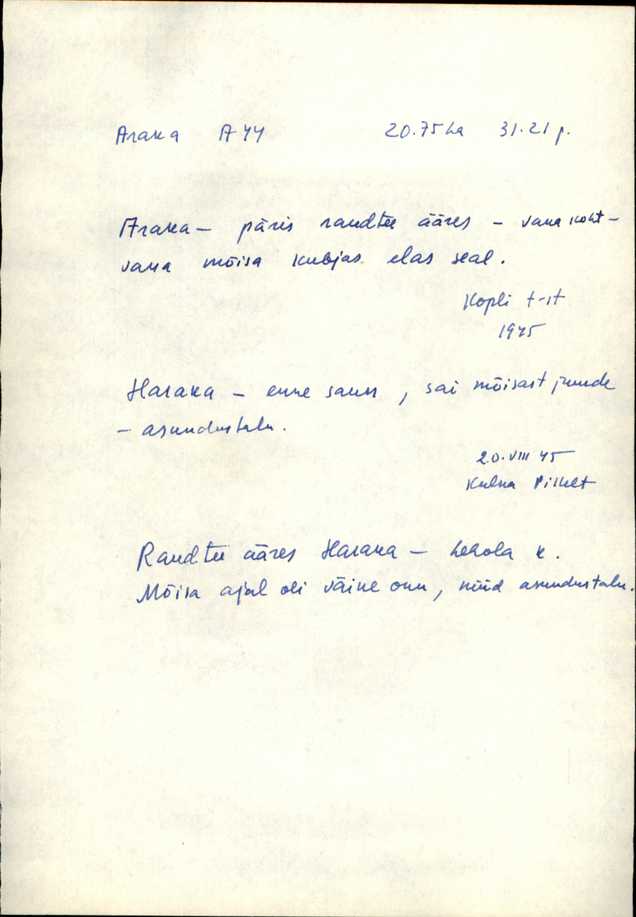 Araka A44 20.75 ha 31.21 p.
Araka – päris raudtee ääres – vana koht –
vana mõisa kubjas elas seal.
Kopli t-st
1945
Haraka – enne saun, sai mõisast juurde
– asundustalu.
20.VIII 45
Kulna Pikket
Raudtee ääres Haraka – Lehola k.
Mõisa ajal oli väike onn, nüüd asundustalu.